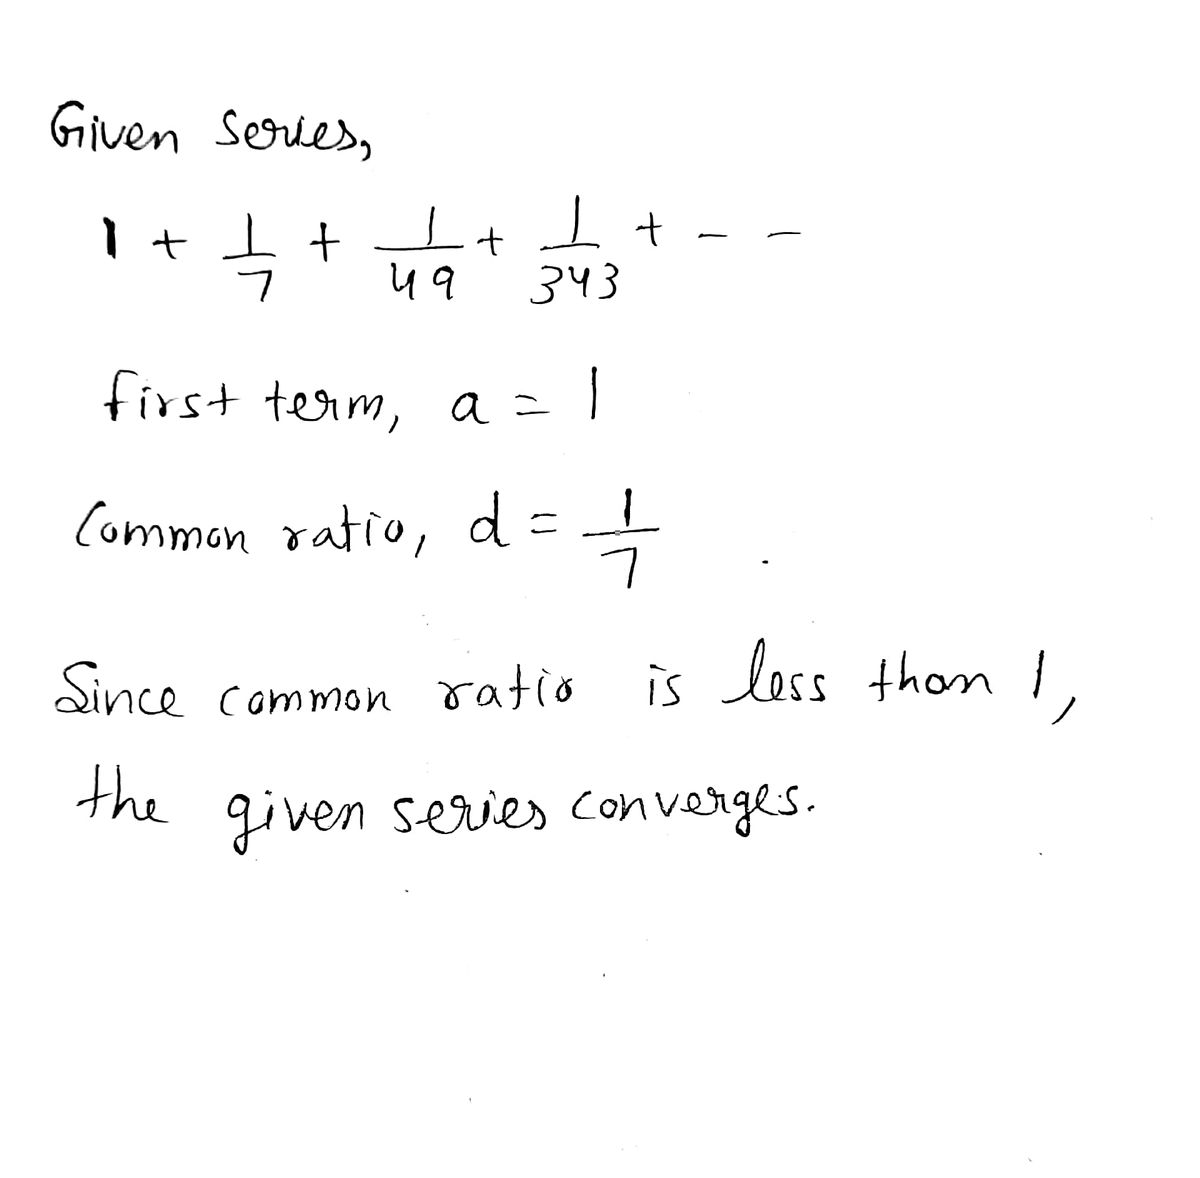 Given series,
1 + 1/7 + 1/49 + 1/343 + - -
first term, a = 1
Common ratio, d = 1/7
Since common ratio is less than 1,
the given series converges.